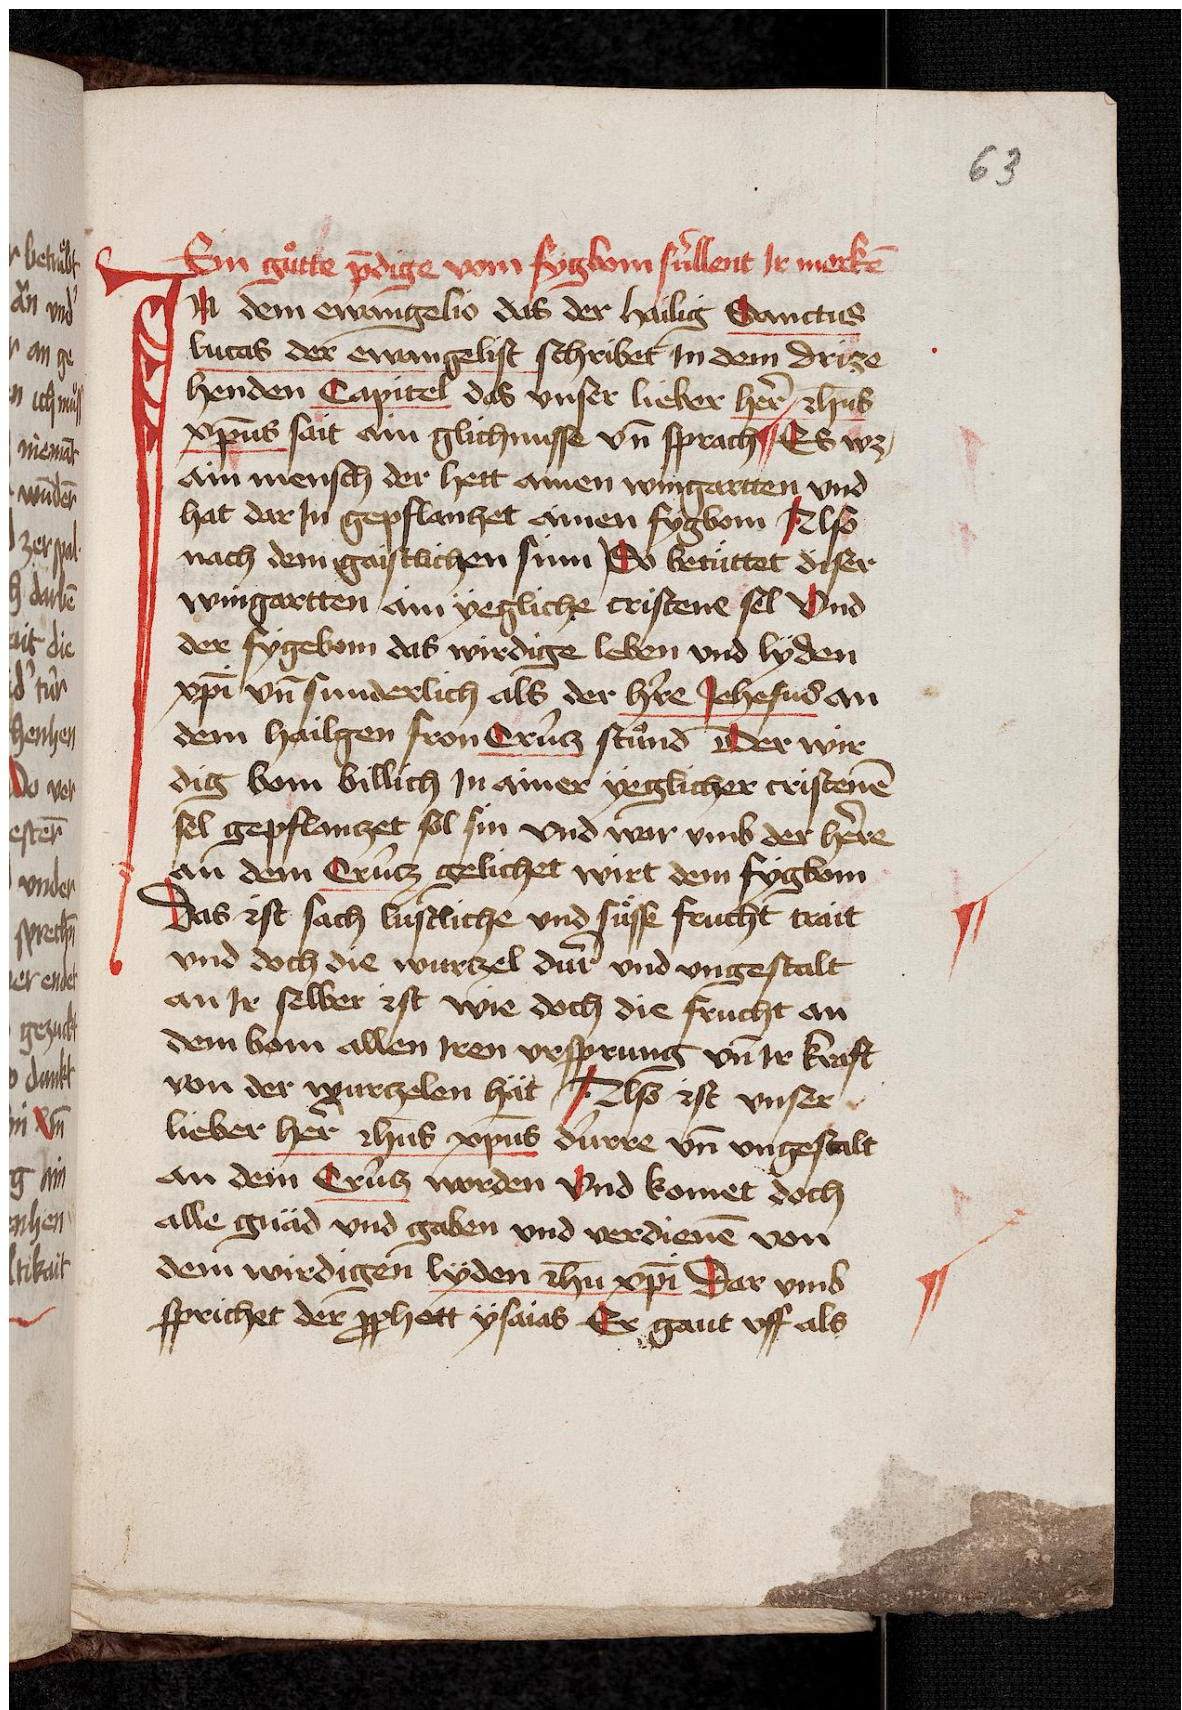 63
Ein gůtte p̄dige vom fygbom sv̈llent Ir merkē
IN dem ewangelio das der hailig Sanctus
lucas der ewangelist schribet In dem drize
henden Capitel das vnser lieber her̄ ihūs
xp̄us sait ain glichnusse vn̄ sprach Es wz
ain mensch der hett ainen wingartten vnd
hat dar In gepflantzet ainen fygbom Also
nach dem gaistlichen sinn So betüttet diser
wingartten ain yegliche cristene sel Vnd
der fygebom das wirdige leben vnd lyden
xp̄i vn̄ sunderlich als der h're Jehesus an
dem hailgen fron Crütz stůnd Der wir
dig bom billich In ainer yeglicher cristenē
sel gepflantzet sol sin vnd war vmb der h're
an dem Crütz gelichet wirt dem fygbom
Das ist sach lustliche vnd sůsse frucht trait
vnd doch die wurtzel dür vnd vngestalt
an Ir selber ist wie doch die frucht an
dem bom allen Iren vrsprung vn̄ Ir kraft
von der wurtzelen hät Also ist vnser
lieber her̄ ihūs xp̄us dürre vn̄ vngestalt
an dem Crütz worden Vnd komet doch
alle gnäd vnd gaben vnd verdienē von
dem wirdigen lyden ih̄u xp̄i Dar vmb
sprichet der p̱phett ysaias Er gaut vff als